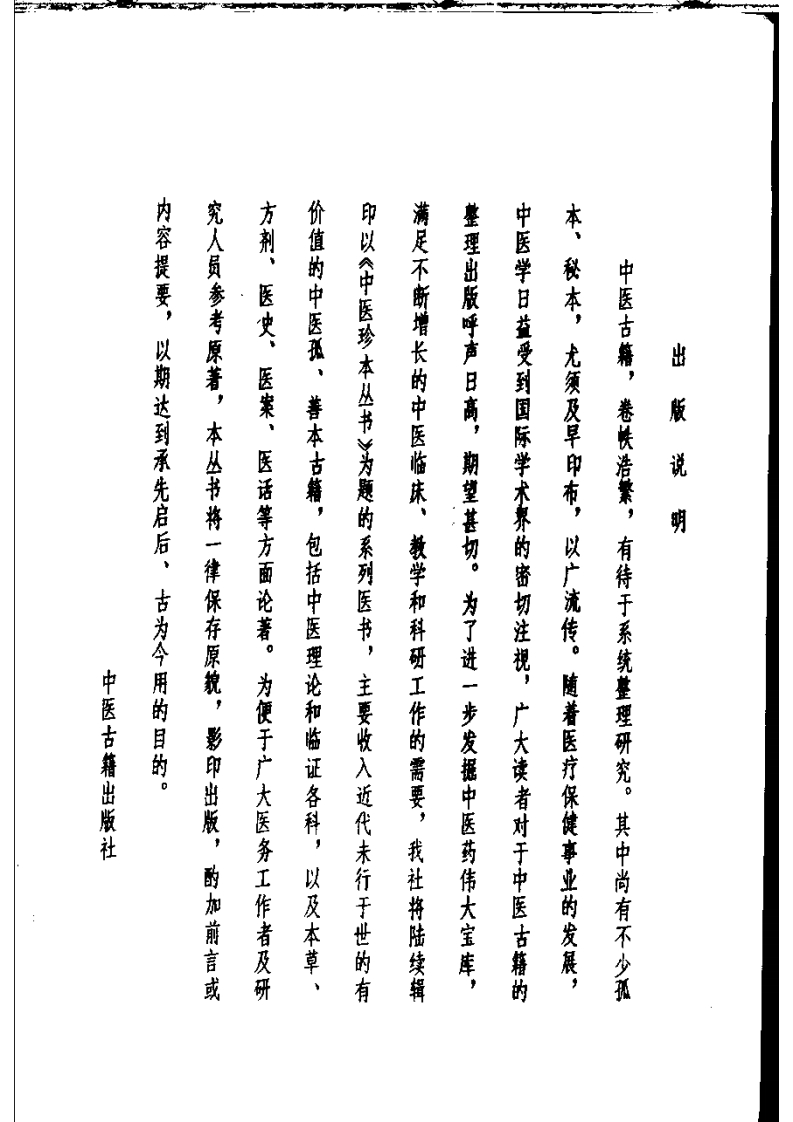 出版说明
中医古籍，卷帙浩繁，有待于系统整理研究。其中尚有不少孤
本、秘本，尤须及早印布，以广流传。随着医疗保健事业的发展，
中医学日益受到国际学术界的密切注视，广大读者对于中医古籍的
整理出版呼声日高，期望甚切。为了进一步发掘中医药伟大宝库，
满足不断增长的中医临床、教学和科研工作的需要，我社将陆续辑
印以《中医珍本丛书》为题的系列医书，主要收入近代未行于世的有
价值的中医孤、善本古籍，包括中医理论和临证各科，以及本草、
方剂、医史、医案、医话等方面论著。为便于广大医务工作者及研
究人员参考原著，本丛书将一律保存原貌，影印出版，酌加前言或
内容提要，以期达到承先启后、古为今用的目的。
中医古籍出版社